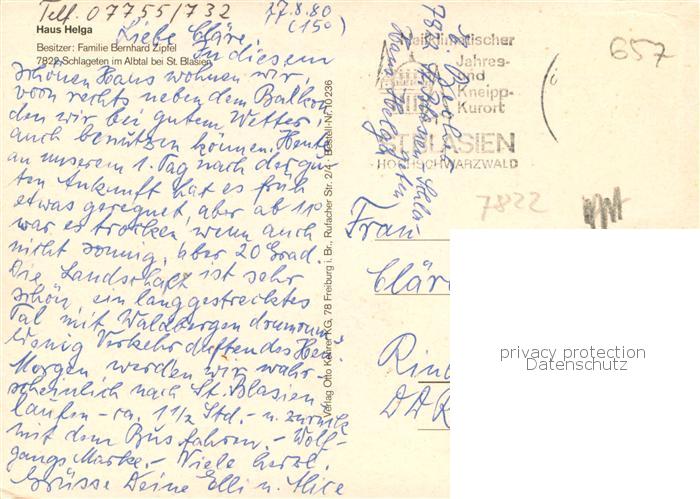 Telf. 07755/732
17.8.80
(15°)
Haus Helga
Besitzer: Familie Bernhard Zipfel
7822 Schlageten im Albtal bei St. Blasien
Liebe Cläre, in diesem
schönen Haus wohnen wir,
vorn rechts neben dem Balkon
den wir bei gutem Wetter
auch benützen können. Heute
an unserem 1. Tag nach der gu-
ten Ankunft hat es früh
etwas geregnet, aber ab 11°
war es trocken, wenn auch
nicht sonnig, aber 20 Grad.
Die Landschaft ist sehr
schön, ein langgestrecktes
Tal mit Waldbergen drumrum
Wenig Verkehr duftendes Heu.
Morgen werden wir wahr-
scheinlich nach St. Blasien
laufen - ca. 1 1/2 Std. - u. zurück
mit dem Bus fahren. - Wolf-
gangs Marke. - Viele herzl.
Grüsse Deine Elli u. Alice
Verlag Otto Kehrer KG, 78 Freiburg i. Br., Rufacher Str. 2/4 · Bestell-Nr. 10 236
Heilklimatischer
Jahres-
und
Kneipp-
Kurort
ST. BLASIEN
HOCHSCHWARZWALD
7822 St. Blasien
Haus Helga
657
7822
Frau
Cläre
DDR
privacy protection
Datenschutz